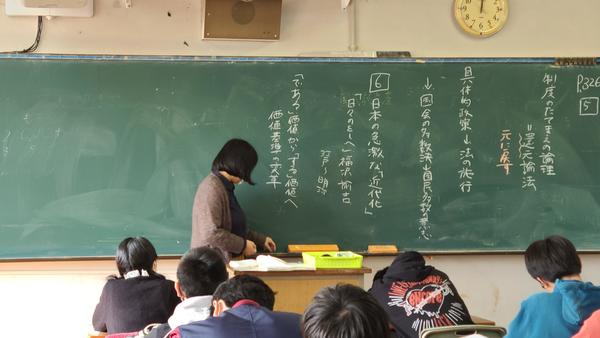 P.326
5
制度のたてまえの論理
=還元論法
元に戻す
具体的政策↓法の施行
↓国会の多数決↓国民多数の意志
6 日本の急激な「近代化」
「日々のをしへ」福沢諭吉
江戸〜明治
「である」価値から「する」価値へ
価値基準の変革